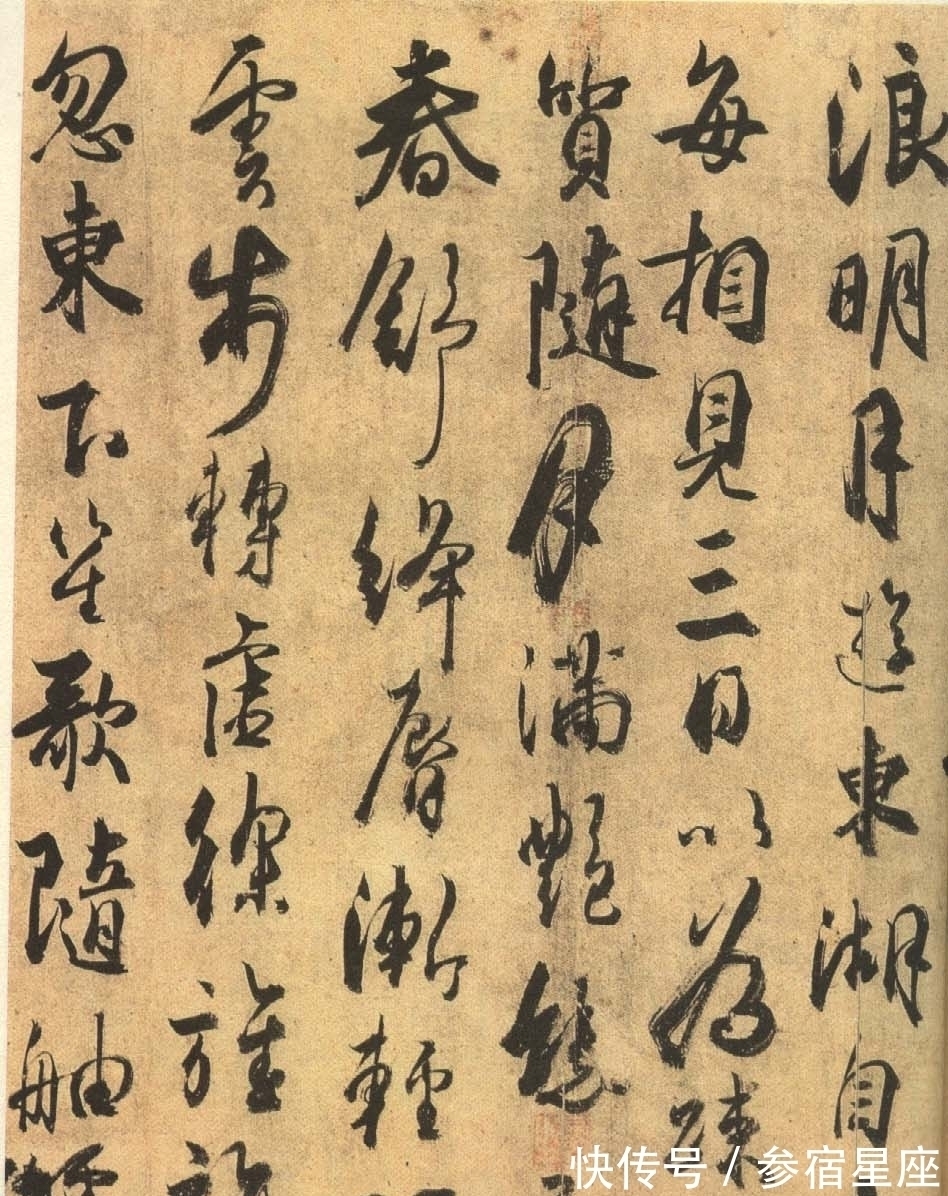 浪明月遊東湖自
每相見三日以為疎
質隨月滿艷態
春舒絳脣漸輕
雲步轉虛徐旌旆
忽東下笙歌隨舳艫
快传号 / 参宿星座